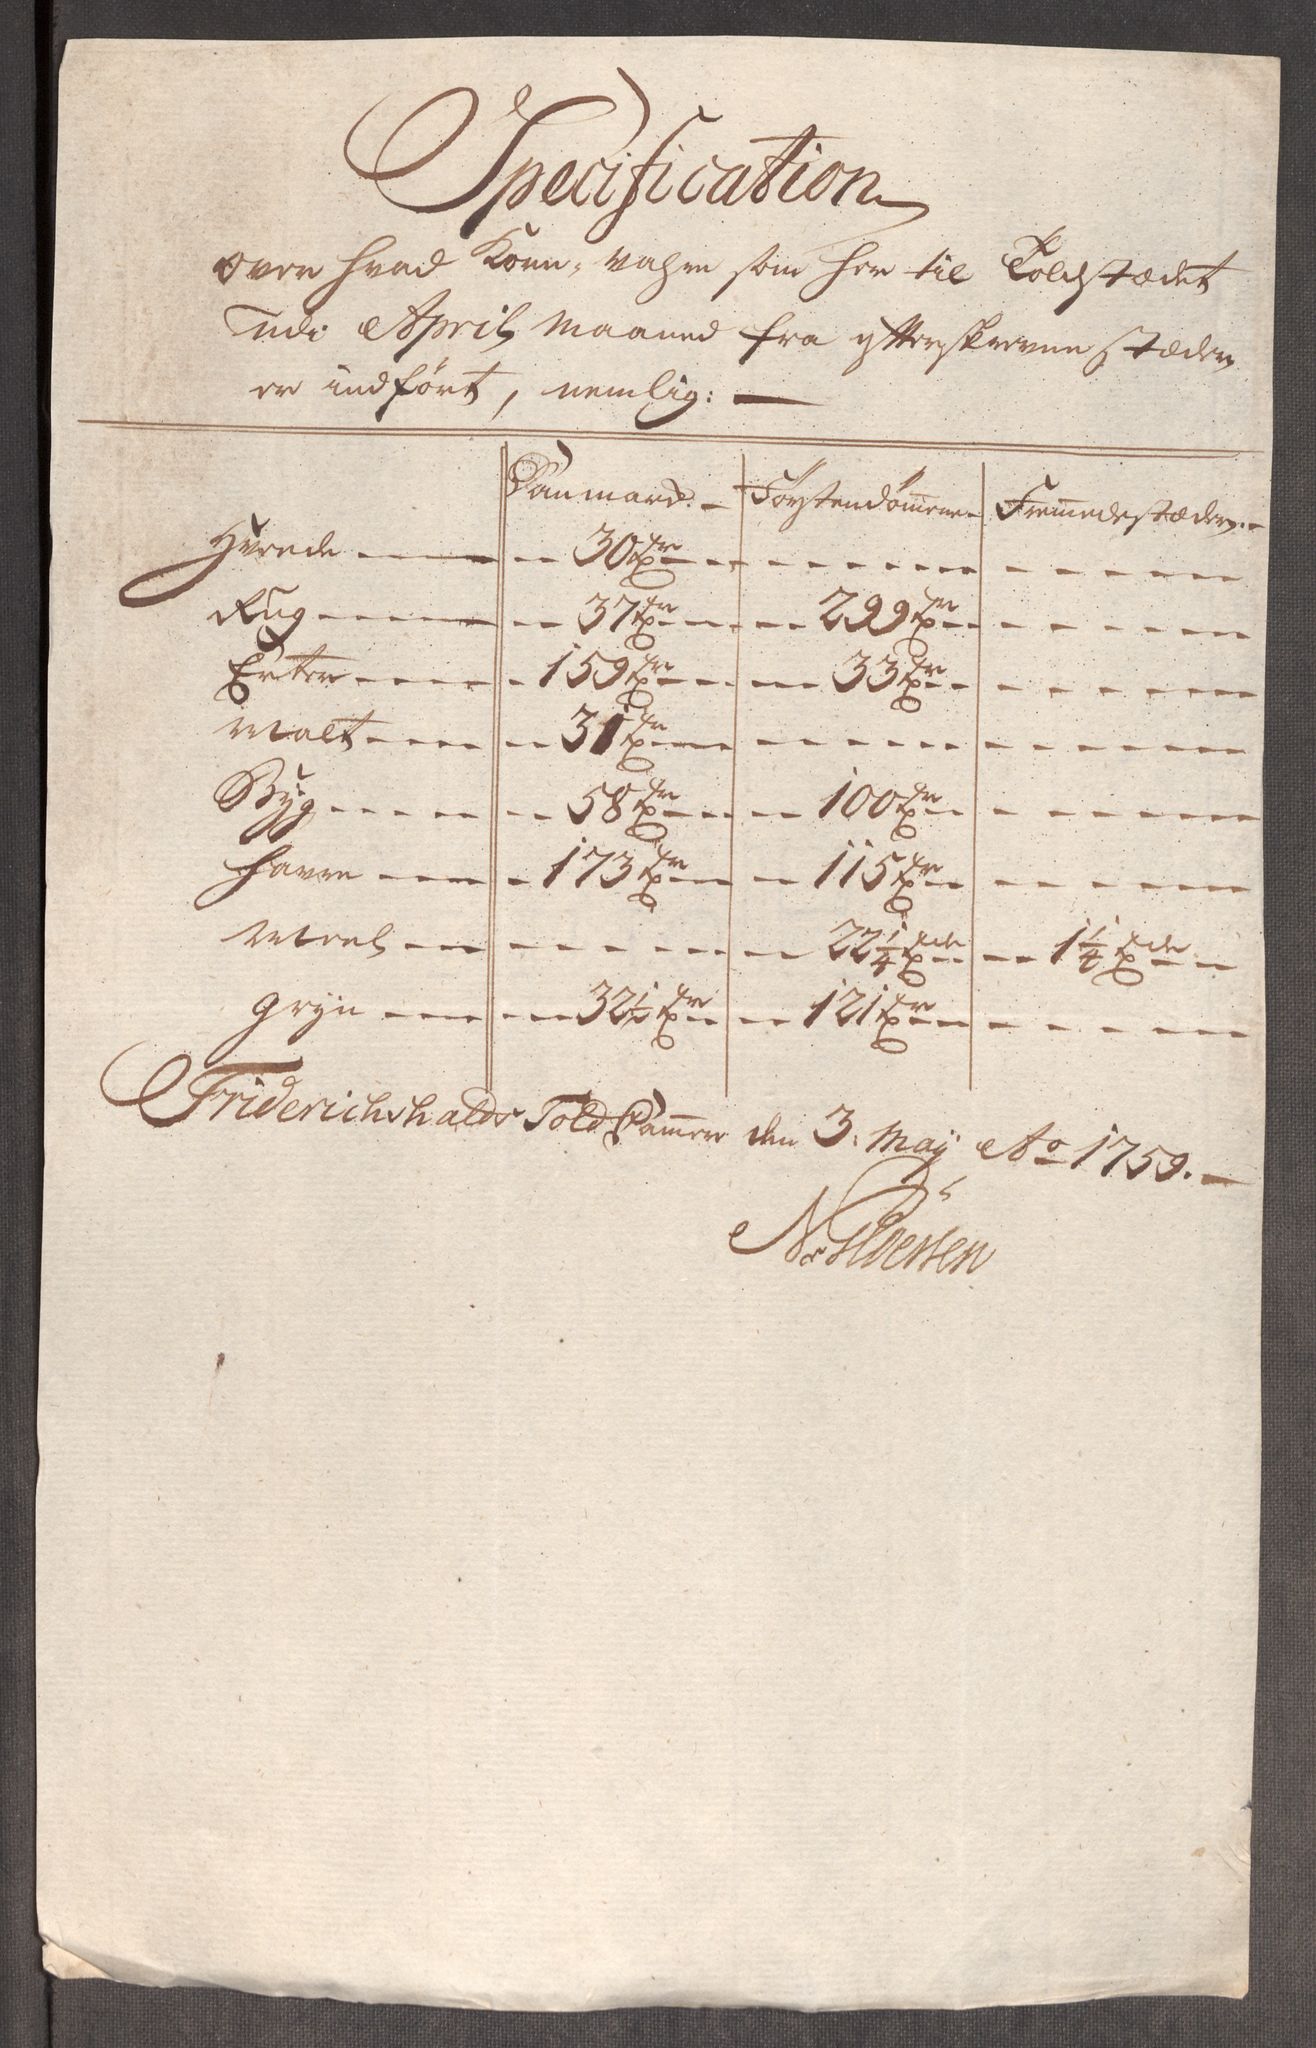 Specification
over hvad Korn-vahre som her til Toldstædet
udi Aprili Maaned fra ÿtterskrevne stæder
er indført, nemlig:
Danmarck. Førstendømene Fremmede stæder.
Hvede 30 Tr
Rug 37 Tr 299 Tr
Erter 159 Tr 33 Tr
Malt 31 Tr
Bÿg 58 Tr 100 Tr
Havre 173 Tr 115 Tr
Meel 22 1/4 Tde 1 1/4 Tde
Grÿn 32 1/2 Tr 121 Tr
Friderichshalds Told Camer den 3. Maÿ Ao 1759.